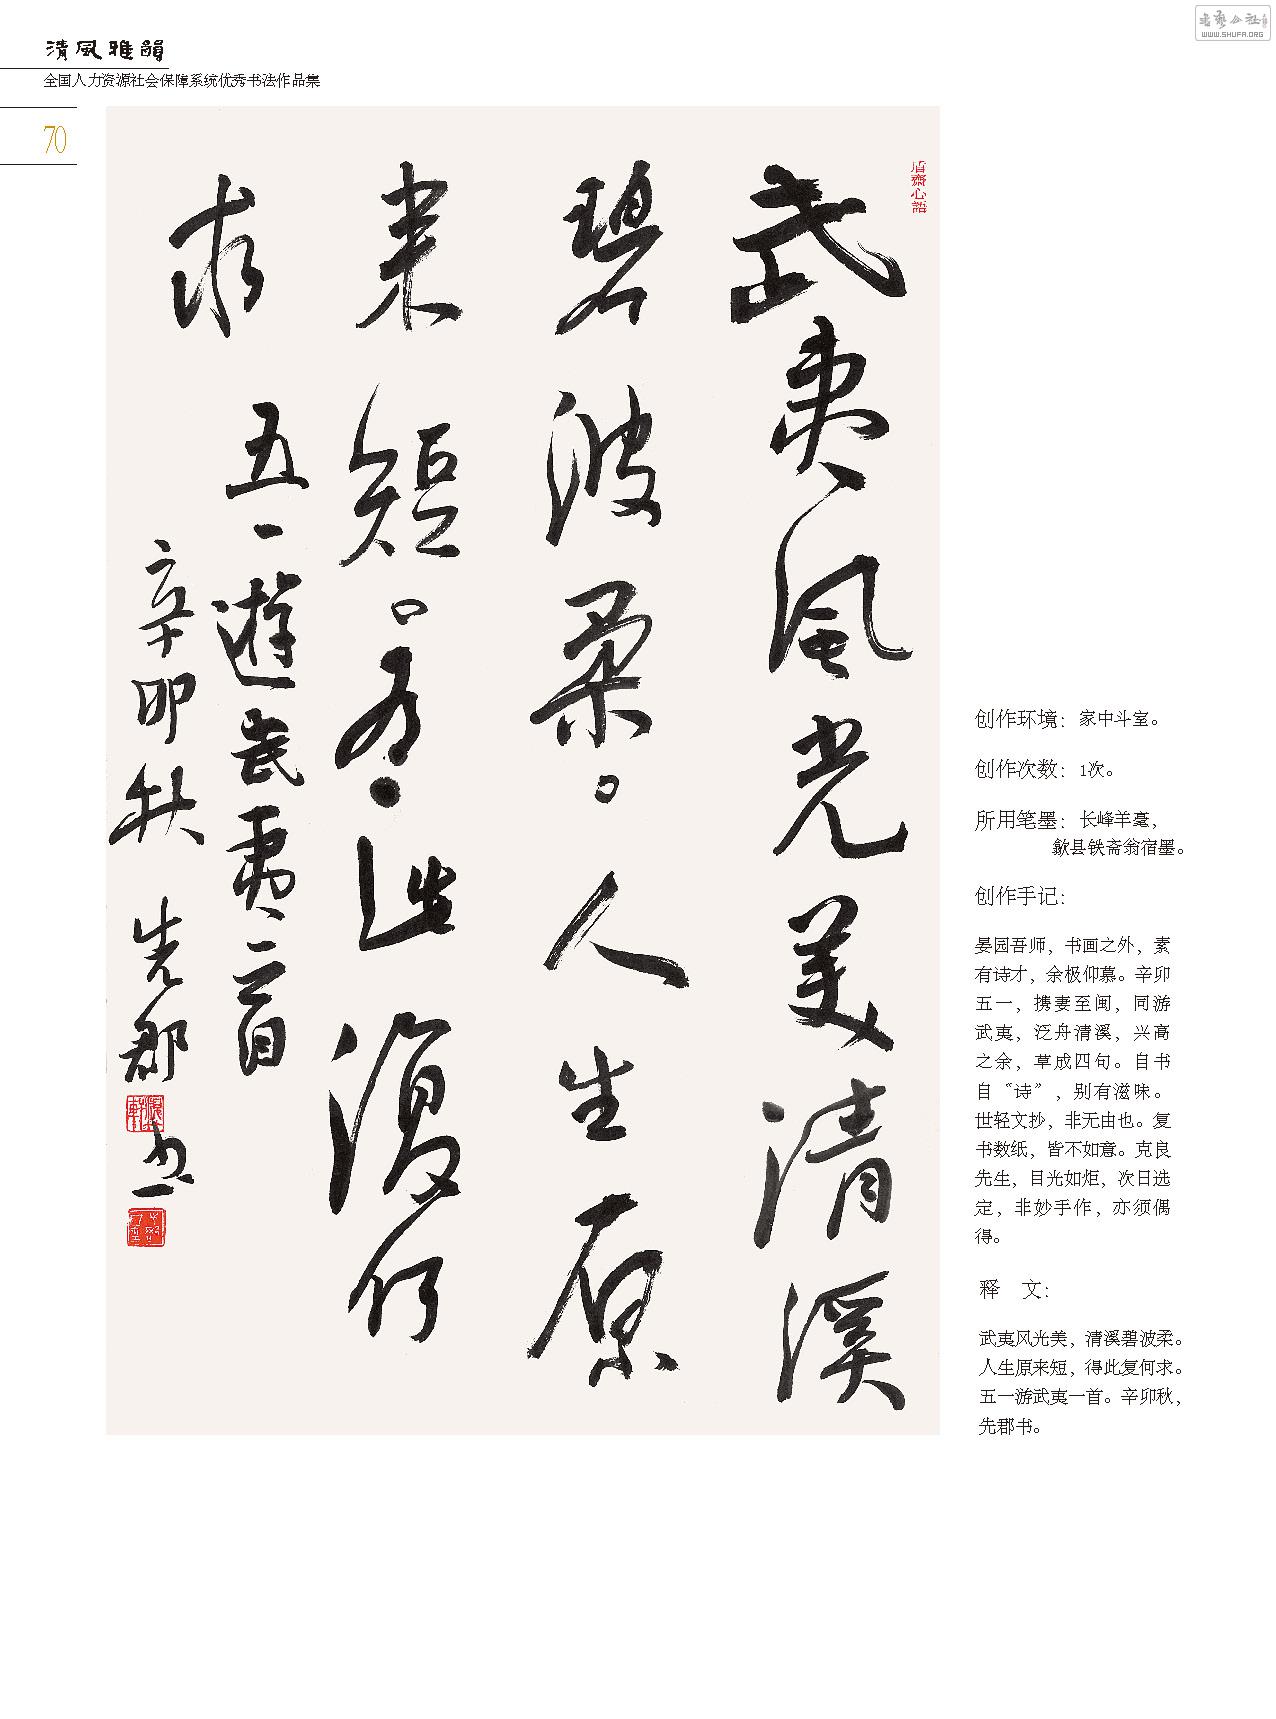 清風雅韻
全国人力资源社会保障系统优秀书法作品集
70
書藝公社
WWW.SHUFA.ORG
盾齋心語
武夷風光美清溪
碧波柔。人生原
来短。得此復何
求
五一遊武夷一首
辛卯秋 先郡书
创作环境：家中斗室。
创作次数：1次。
所用笔墨：长峰羊毫，
歙县铁斋翁宿墨。
创作手记：
晏园吾师，书画之外，素
有诗才，余极仰慕。辛卯
五一，携妻至闽，同游
武夷，泛舟清溪，兴高
之余，草成四句。自书
自“诗”，别有滋味。
世轻文抄，非无由也。复
书数纸，皆不如意。克良
先生，目光如炬，次日选
定，非妙手作，亦须偶
得。
释 文：
武夷风光美，清溪碧波柔。
人生原来短，得此复何求。
五一游武夷一首。辛卯秋，
先郡书。